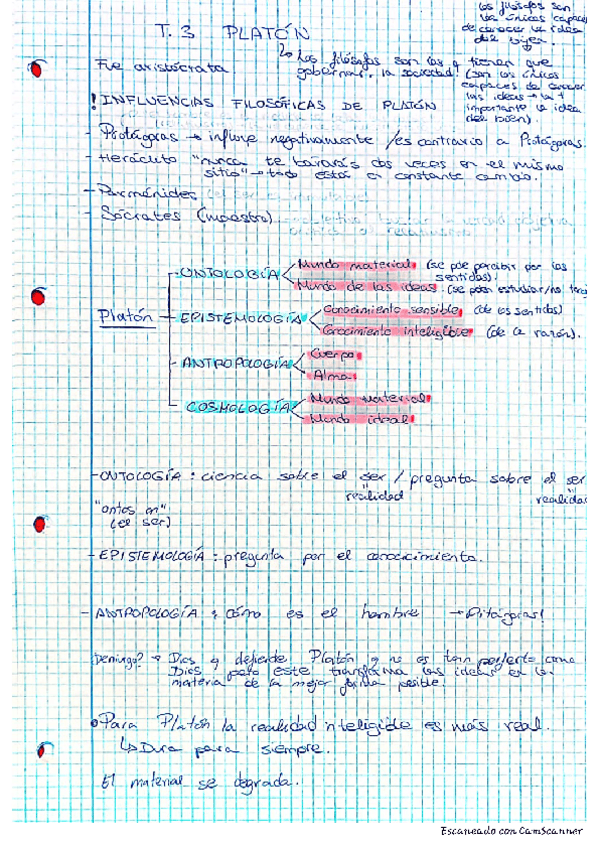 los filósofos son
los únicos capaces
de conocer la idea
del bien.
T. 3 PLATÓN
Fue aristócrata
↳ Los filósofos son los q tienen que
gobernar la sociedad! (son los únicos
capaces de conocer
las ideas → la +
importante la idea
del bien)
! INFLUENCIAS FILOSÓFICAS DE PLATÓN
- Protágoras → influye negativamente / es contrario a Protágoras.
- Heráclito "nunca te bañarás dos veces en el mismo
sitio" → todo está en constante cambio.
- Parménides
- Sócrates (maestro)
Platón
- ONTOLOGÍA
Mundo material (se pde percibir por los
sentidos).
Mundo de las ideas. (se pden estudiar/no tocar
- EPISTEMOLOGÍA
Conocimiento sensible (de los sentidos)
Conocimiento inteligible (de la razón).
- ANTROPOLOGÍA
Cuerpo
Alma
COSMOLOGÍA
Mundo material
Mundo ideal
- ONTOLOGÍA: ciencia sobre el ser / pregunta sobre el ser
realidad realidad
"ontos on"
(el ser)
- EPISTEMOLOGÍA: pregunta por el conocimiento.
- ANTROPOLOGÍA: cómo es el hombre → Pitágoras!
Demiurgo? → Dios q defiende Platón q no es tan perfecto como
Dios pero este transforma las ideas en la
materia de la mejor forma posible!
• Para Platón la realidad inteligible es más real.
↳ Dura para siempre.
El material se degrada.
Escaneado con CamScanner